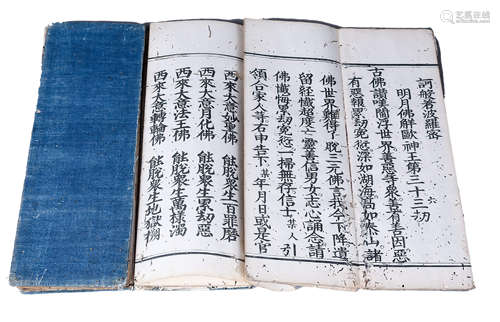 訶般若波羅蜜
明月佛解歐神王第三十三切六
古佛讚嘆閻浮世界善惡等衆善有善因惡
有惡類罪刼愆深如湖海高如泰山諸
佛世界難得了脫三元佛書我今下降遺
留經懺超度亡靈善信男女志心誦念請
佛懺悔累刼冤愆一掃無存信士某人引
領合家人等右申告下某年月日或是官
西來大意妙重佛 能脫衆生百難磨
西來大意月化佛 能脫衆生累刼惡
西來大意法王佛 能脫衆生萬樣濁
西來大意轉輪佛 能脫衆生地獄棚